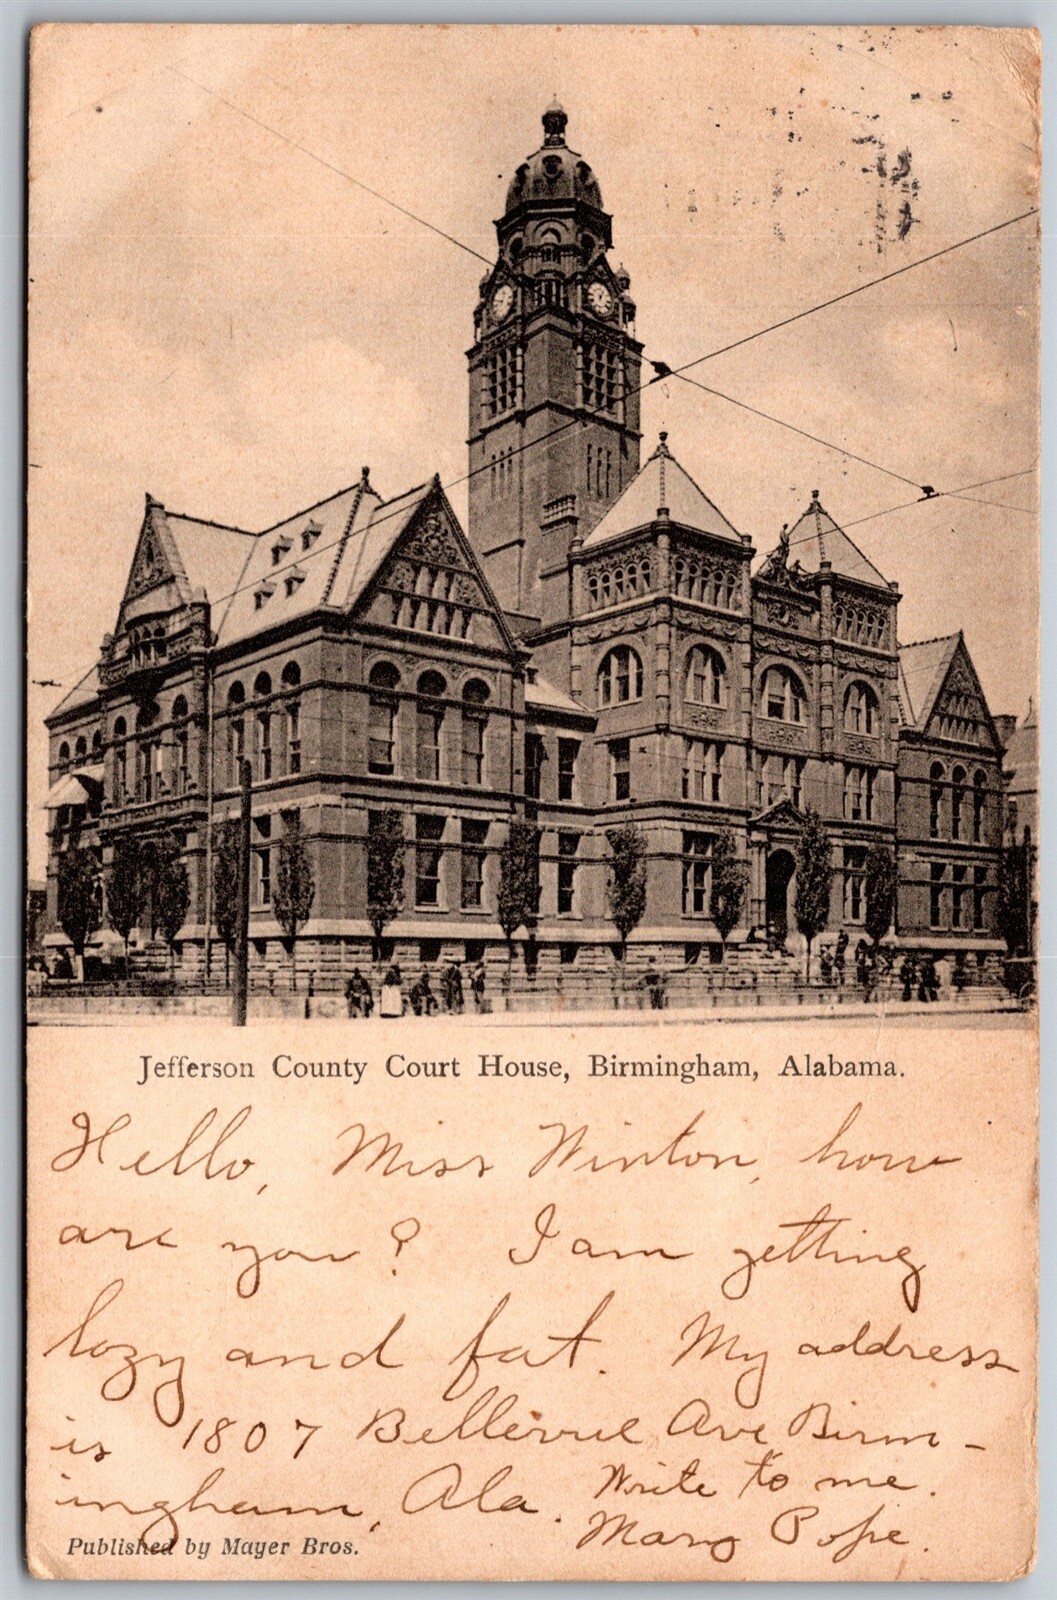 Jefferson County Court House, Birmingham, Alabama.
Hello, Miss Winton, how
are you? I am getting
lazy and fat. My address
is 1807 Bellevue Ave Birm-
ingham, Ala. Write to me.
Mary Pope.
Published by Mayer Bros.